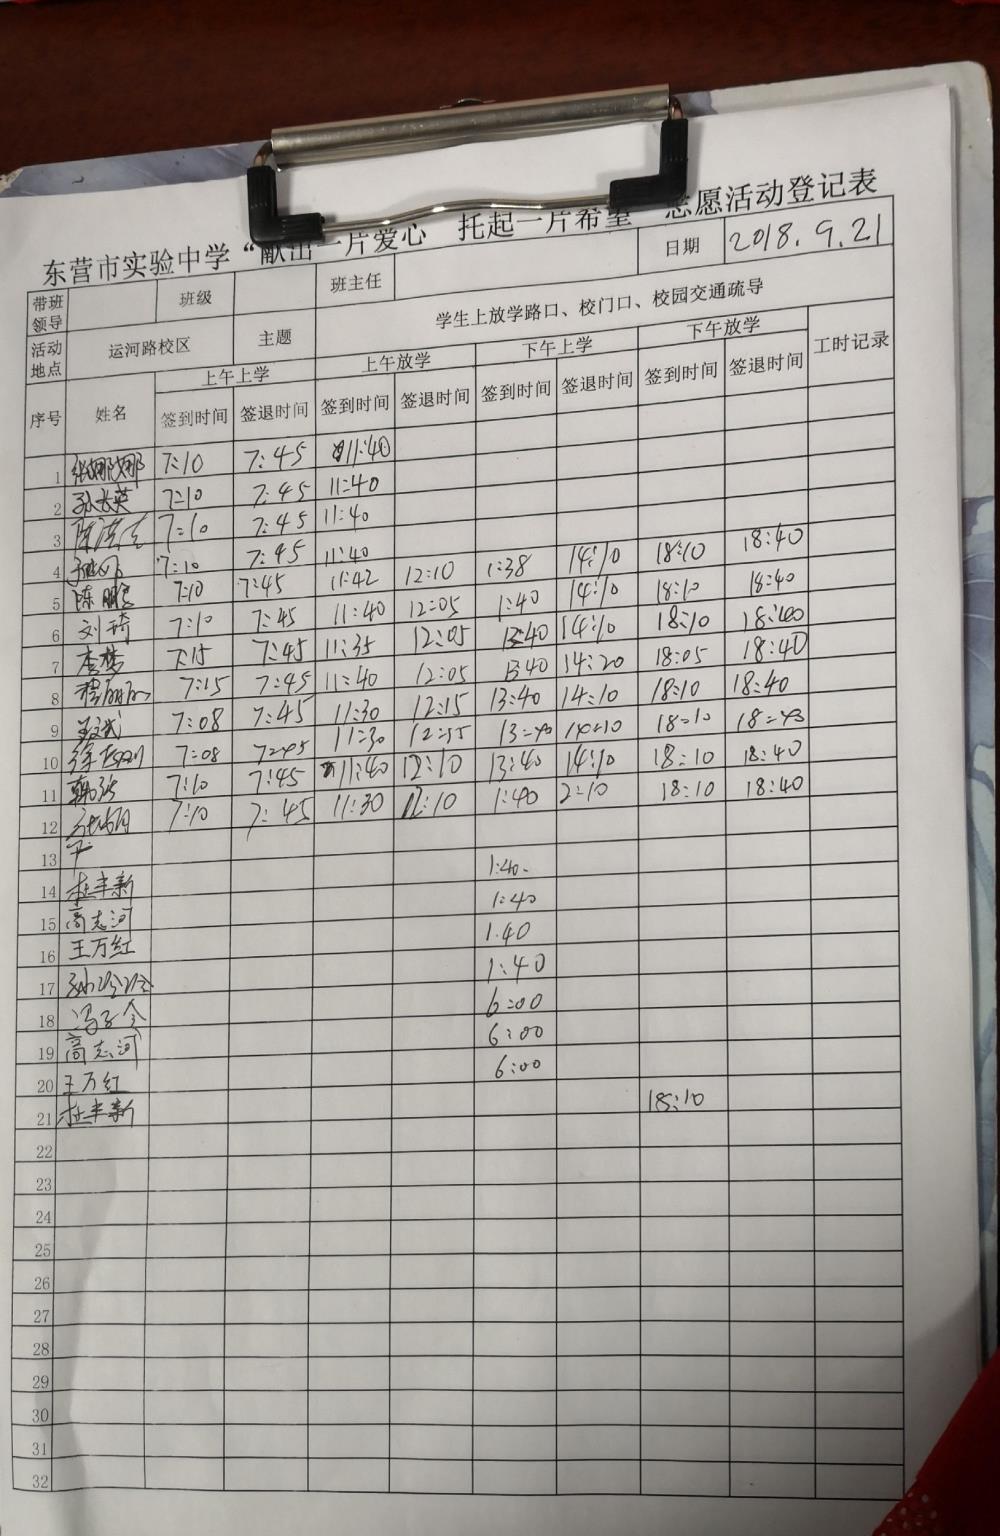 东营市实验中学“献出一片爱心 托起一片希望”志愿活动登记表
带班领导 班级 班主任 日期 2018.9.21
活动地点 运河路校区 主题 学生上放学路口、校门口、校园交通疏导
序号 姓名 上午上学 上午放学 下午上学 下午放学 工时记录
签到时间 签退时间 签到时间 签退时间 签到时间 签退时间 签到时间 签退时间
1 张娜娜 7:10 7:45 11:40
2 孙长英 7:10 7:45 11:40
3 7:10 7:45 11:40
4 7:10 7:45 11:40
5 陈鹏 7:10 7:45 11:42 12:10 1:38 14:10 18:10 18:40
6 刘琦 7:10 7:45 11:40 12:05 1:40 14:10 18:10 18:40
7 李梦 7:15 7:45 11:35 12:05 13:40 14:10 18:10 18:40
8 程丽丽 7:15 7:45 11:40 12:05 13:40 14:20 18:05 18:40
9 7:08 7:45 11:30 12:15 13:40 14:10 18:10 18:40
10 徐 7:08 7:45 11:30 12:15 13:40 14:10 18:10 18:40
11 韩 7:10 7:45 11:40 12:10 13:40 14:10 18:10 18:40
12 7:10 7:45 11:30 12:10 1:40 2:10 18:10 18:40
13
14 杜丰新 1:40
15 高志河 1:40
16 王万红 1:40
17 孙玲玲 1:40
18 冯 6:00
19 高志河 6:00
20 王万红 6:00
21 杜丰新 18:10
22
23
24
25
26
27
28
29
30
31
32